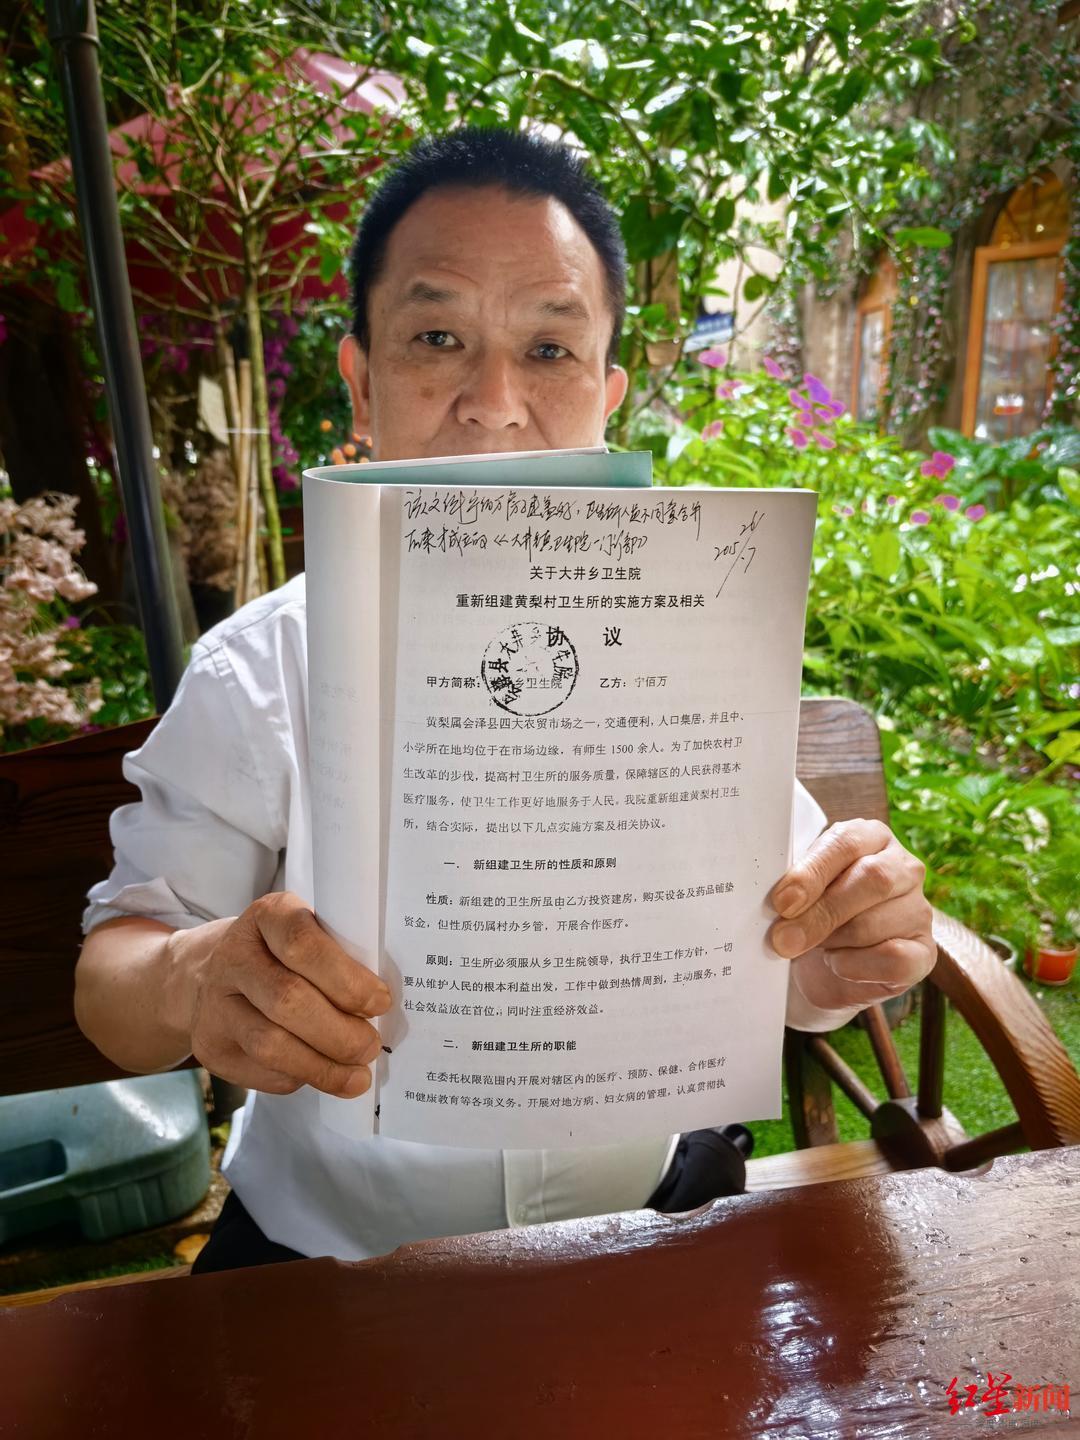 2015/7/26
关于大井乡卫生院
重新组建黄梨村卫生所的实施方案及相关
协 议
甲方简称: 乡卫生院 乙方: 宁佰万
黄梨属会泽县四大农贸市场之一，交通便利，人口集居，并且中、
小学所在地均位于在市场边缘，有师生 1500 余人。为了加快农村卫
生改革的步伐，提高村卫生所的服务质量，保障辖区的人民获得基本
医疗服务，使卫生工作更好地服务于人民。我院重新组建黄梨村卫生
所，结合实际，提出以下几点实施方案及相关协议。
一． 新组建卫生所的性质和原则
性质：新组建的卫生所虽由乙方投资建房，购买设备及药品铺垫
资金，但性质仍属村办乡管，开展合作医疗。
原则：卫生所必须服从乡卫生院领导，执行卫生工作方针，一切
要从维护人民的根本利益出发，工作中做到热情周到，主动服务，把
社会效益放在首位，同时注重经济效益。
二． 新组建卫生所的职能
在委托权限范围内开展对辖区内的医疗、预防、保健、合作医疗
和健康教育等各项义务。开展对地方病、妇女病的管理，认真贯彻执
1
红星新闻